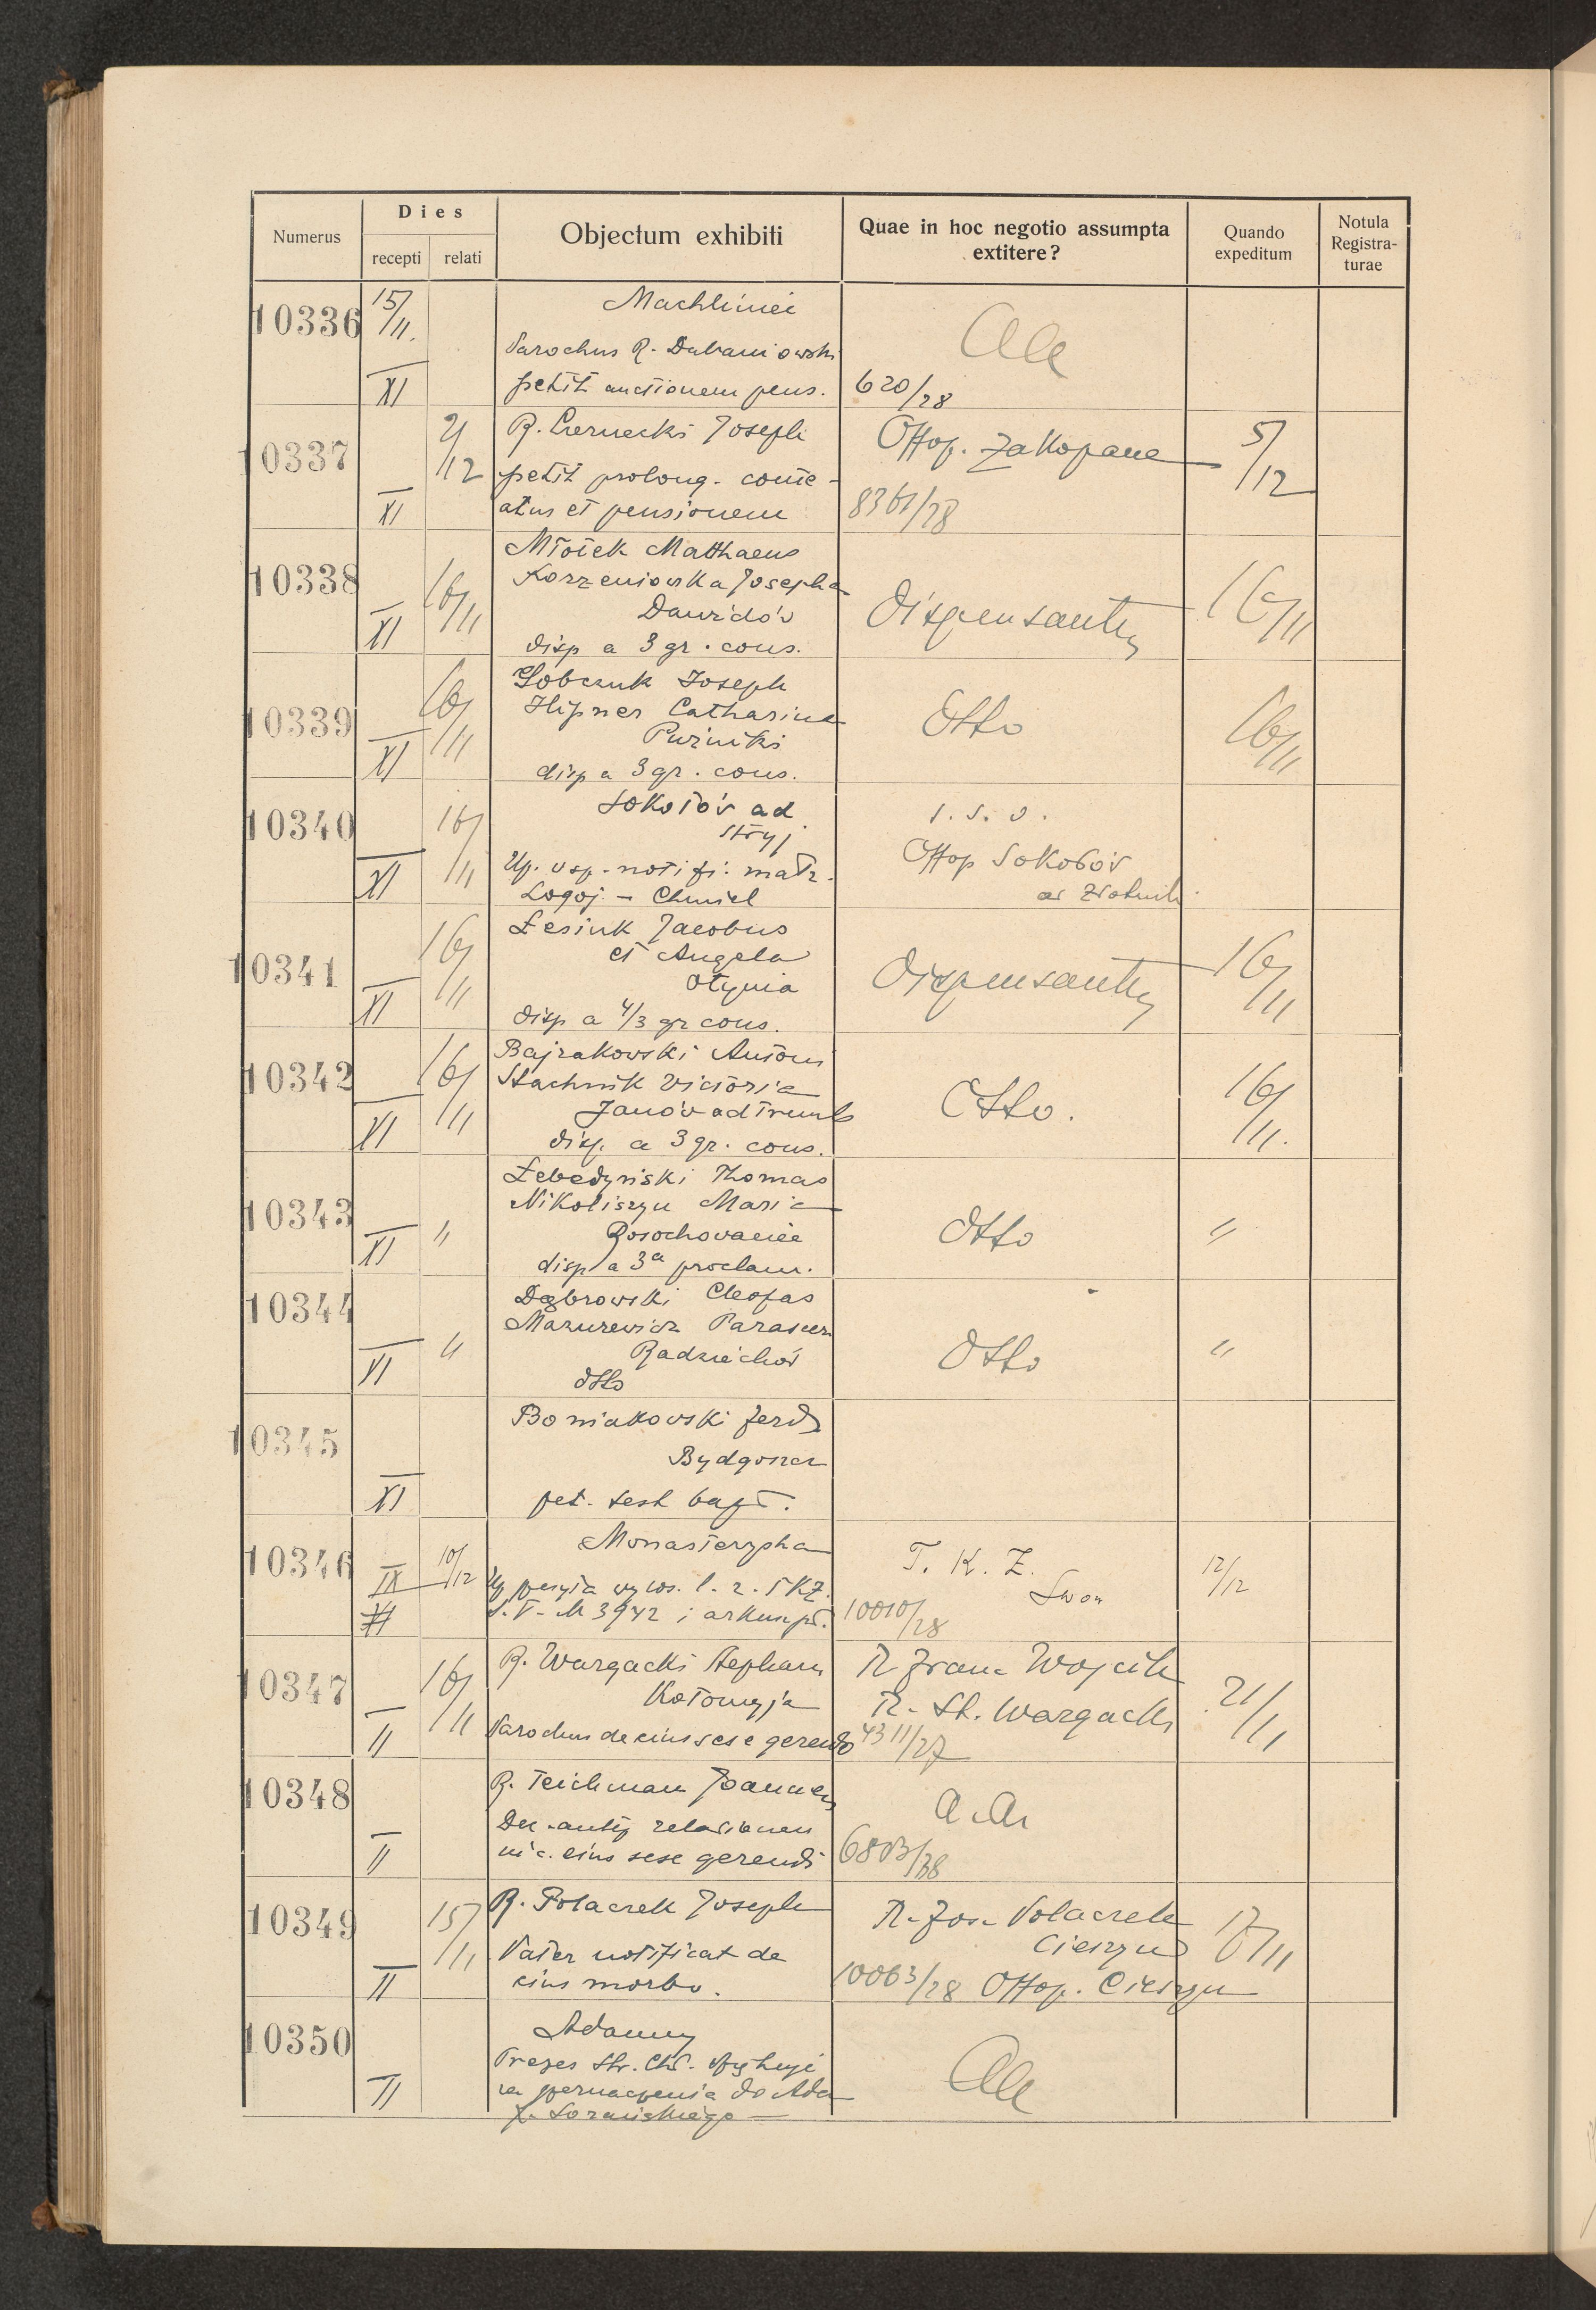 Numerus
Dies
recepti relati
Objectum exhibiti
Quae in hoc negotio assumpta
extitere?
Quando
expeditum
Notula
Registra-
turae
10336 15/11. XI
Machliniei
Parochus R.
petit auctionem pens.
620/28
10337 XI 2/12
R. Czernecki Joseph
petit prolong. come-
atus et pensionem
Offop. Zakopane
8361/28
5/12
10338 XI 16/11
Młotek Matthaeus
Korzeniowska Josepha
Dawidów
disp a 3 gr. cons.
Dispensantur
16/11
10339 XI 16/11
Sobczuk Joseph
Hipner Catharina
Puźniki
disp a 3 gr. cons.
Otto
16/11
10340 XI 16/11
Sokołów ad
Stryj
Up. usp. notifi. matr.
Logoj - Chmiel
I. S. O.
Offop Sokołów
10341 XI 16/11
Łesiuk Jacobus
et Angela
Otynia
disp a 4/3 gr cons.
Dispensantur
16/11
10342 XI 16/11
Bajrakowski Antoni
Stachnik Victoria
Janów ad Tremb
disp. a 3 gr. cons.
Otto.
16/11.
10343 XI "
Łebedyński Thomas
Nikoliszyn Maria
Rosochovaciec
disp a 3a proclam.
Otto
"
10344 XI "
Dąbrowski Cleofas
Mazurewicz Parascev.
Radziechów
dtto
Otto
"
10345 XI
Boniakowski Ferd
Bydgoszcz
pet. test bapt.
10346 IX XI 10/12
Monasterzyska
S. V - M 3942 i arkusz pł.
T. K. Z.
Lwow
10010/28
12/12
10347 II 16/11
R. Wargacki Stephan
Kołomyja
Parochus de eius sese gerendo
R. Franc Wojcik
R. St. Wargacki
4311/27
21/11
10348 II
R. Teichman Joannes
Dec. antiq relationem
nic. eius sese gerendi
a. a.
6803/28
10349 II 15/11
R. Polaczek Joseph
Pater notificat de
eius morbo.
R. Jos. Polaczek
Cieszyn
10063/28 Offop. Cieszyn
17/11
10350 II
Adamy
Prezes Str. Chł.